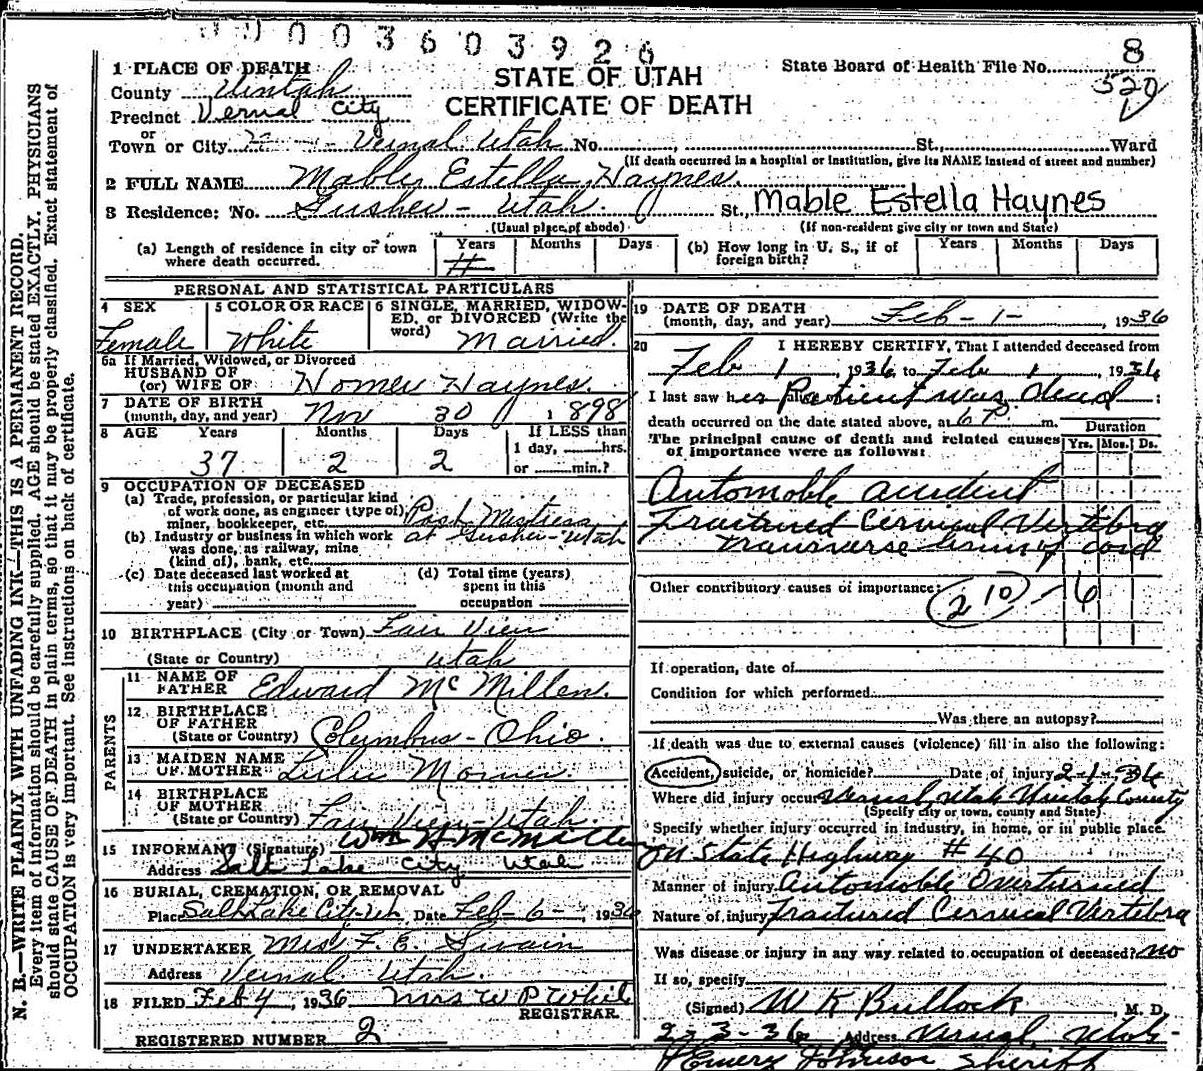 0003603926
8
State Board of Health File No.
520
STATE OF UTAH
CERTIFICATE OF DEATH
1 PLACE OF DEATH
County Uintah
Precinct Vernal City
or
Town or City Vernal Utah No. St., Ward
(If death occurred in a hospital or institution, give its NAME instead of street and number)
2 FULL NAME Mable Estella Haynes.
3 Residence: No. Gusher - Utah. St., Mable Estella Haynes
(Usual place of abode) (If non-resident give city or town and State)
(a) Length of residence in city or town where death occurred. Years Months Days
(b) How long in U. S., if of foreign birth? Years Months Days
PERSONAL AND STATISTICAL PARTICULARS
4 SEX Female
5 COLOR OR RACE White
6 SINGLE, MARRIED, WIDOWED, or DIVORCED (Write the word) Married.
6a If Married, Widowed, or Divorced
HUSBAND OF
(or) WIFE OF Homer Haynes.
7 DATE OF BIRTH
(month, day, and year) Nov 30 1898
8 AGE Years Months Days If LESS than
1 day, hrs.
37 2 2 or min.?
9 OCCUPATION OF DECEASED
(a) Trade, profession, or particular kind
of work done, as engineer (type of)
miner, bookkeeper, etc. Post Mistress
(b) Industry or business in which work at Gusher - Utah
was done, as railway, mine
(kind of), bank, etc.
(c) Date deceased last worked at
this occupation (month and
year)
(d) Total time (years)
spent in this
occupation
10 BIRTHPLACE (City or Town) Fair View
(State or Country) Utah
PARENTS
11 NAME OF
FATHER Edward McMillen.
12 BIRTHPLACE
OF FATHER
(State or Country) Columbus - Ohio.
13 MAIDEN NAME
OF MOTHER Lulu
14 BIRTHPLACE
OF MOTHER
(State or Country) Fair View - Utah.
15 INFORMANT (Signature) Wm H McMillen
Address Salt Lake City Utah
16 BURIAL, CREMATION, OR REMOVAL
Place Salt Lake City Ut. Date Feb - 6 - 1936
17 UNDERTAKER F. E. Swain
Address Vernal Utah.
18 FILED Feb 4, 1936 Mrs W P White
REGISTRAR.
REGISTERED NUMBER 2
19 DATE OF DEATH
(month, day, and year) Feb - 1 - 1936
20 I HEREBY CERTIFY, That I attended deceased from
Feb 1, 1936, to Feb 1, 1936
I last saw h er Patient was dead;
death occurred on the date stated above, at 6 P. m.
The principal cause of death and related causes
of importance were as follows:
Duration
Yrs. Mos. Ds.
Automobile accident
Fractured Cervical Vertebra
Transverse of cord
Other contributory causes of importance:
210 - 6
If operation, date of
Condition for which performed
Was there an autopsy?
If death was due to external causes (violence) fill in also the following:
Accident, suicide, or homicide? Date of injury 2-1-36
Where did injury occur Vernal, Utah Uintah County
(Specify city or town, county and State)
Specify whether injury occurred in industry, in home, or in public place.
on State Highway # 40
Manner of injury Automobile Overturned
Nature of injury Fractured Cervical Vertebra
Was disease or injury in any way related to occupation of deceased? no
If so, specify
(Signed) W K Bullock, M. D.
2-3-36 Address Vernal, Utah -
Emery Johnson Sheriff
N. B.—WRITE PLAINLY WITH UNFADING INK—THIS IS A PERMANENT RECORD.
Every item of information should be carefully supplied. AGE should be stated EXACTLY. PHYSICIANS
should state CAUSE OF DEATH in plain terms, so that it may be properly classified. Exact statement of
OCCUPATION is very important. See instructions on back of certificate.